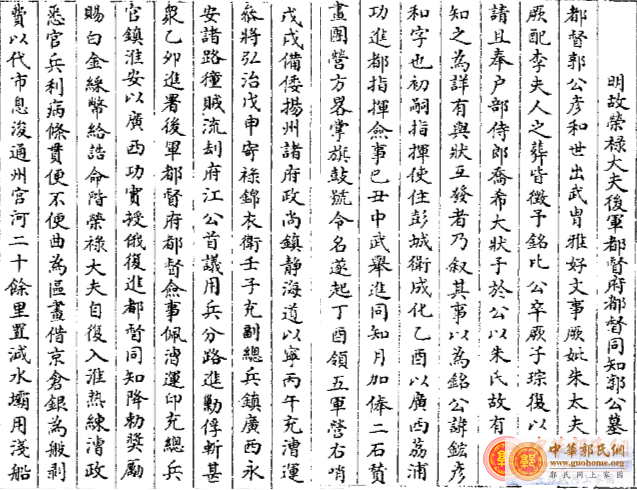 明故榮祿大夫後軍都督府都督同知郭公墓
都督郭公彥和世出武胄雅好文事厥妣朱太夫
厥配李夫人之葬皆徵予銘比公卒厥子琮復以
請且奉戶部侍郎喬希大狀予於公以朱氏故有
知之為詳有與狀互發者乃叙其事以為銘公諱鋐彥
和字也初嗣指揮使住彭城衛成化乙酉以廣西荔浦
功進都指揮僉事己丑中武舉進同知月加俸二石贊
畫團營方畧掌旗鼓號令名遂起丁酉領五軍營右哨
戊戌備倭揚州諸府政尚鎮靜海道以寧丙午充漕運
叅將弘治戊申寄祿錦衣衛壬子充副總兵鎮廣西永
安諸路獞賊流刦府江公首議用兵分路進勦俘斬甚
衆乙卯進署後軍都督府都督僉事佩漕運印充總兵
官鎮淮安以廣西功實授俄復進都督同知降勅獎勵
賜白金綵幣給誥命階榮祿大夫自復入淮熟練漕政
悉官兵利病條貫便不便曲為區畫借京倉銀為般剥
費以代市息浚通州官河二十餘里置減水壩用淺船
中華郭氏網
www.guohome.org
郭氏网上家园